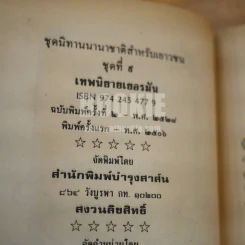 ชุดนิทานนานาชาติสำหรับเยาวชน
ชุดที่ ๙
เทพนิยายเยอรมัน
ISBN 974 245 477 9
ฉบับพิมพ์ครั้งที่ ๒ พ.ศ. ๒๕๒๘
พิมพ์ครั้งแรก พ.ศ. ๒๕๐๖
จัดพิมพ์โดย
สำนักพิมพ์บำรุงสาส์น
๘๖๔ วังบูรพา กท. ๑๐๒๐๐
สงวนลิขสิทธิ์
จัดจำหน่ายโดย